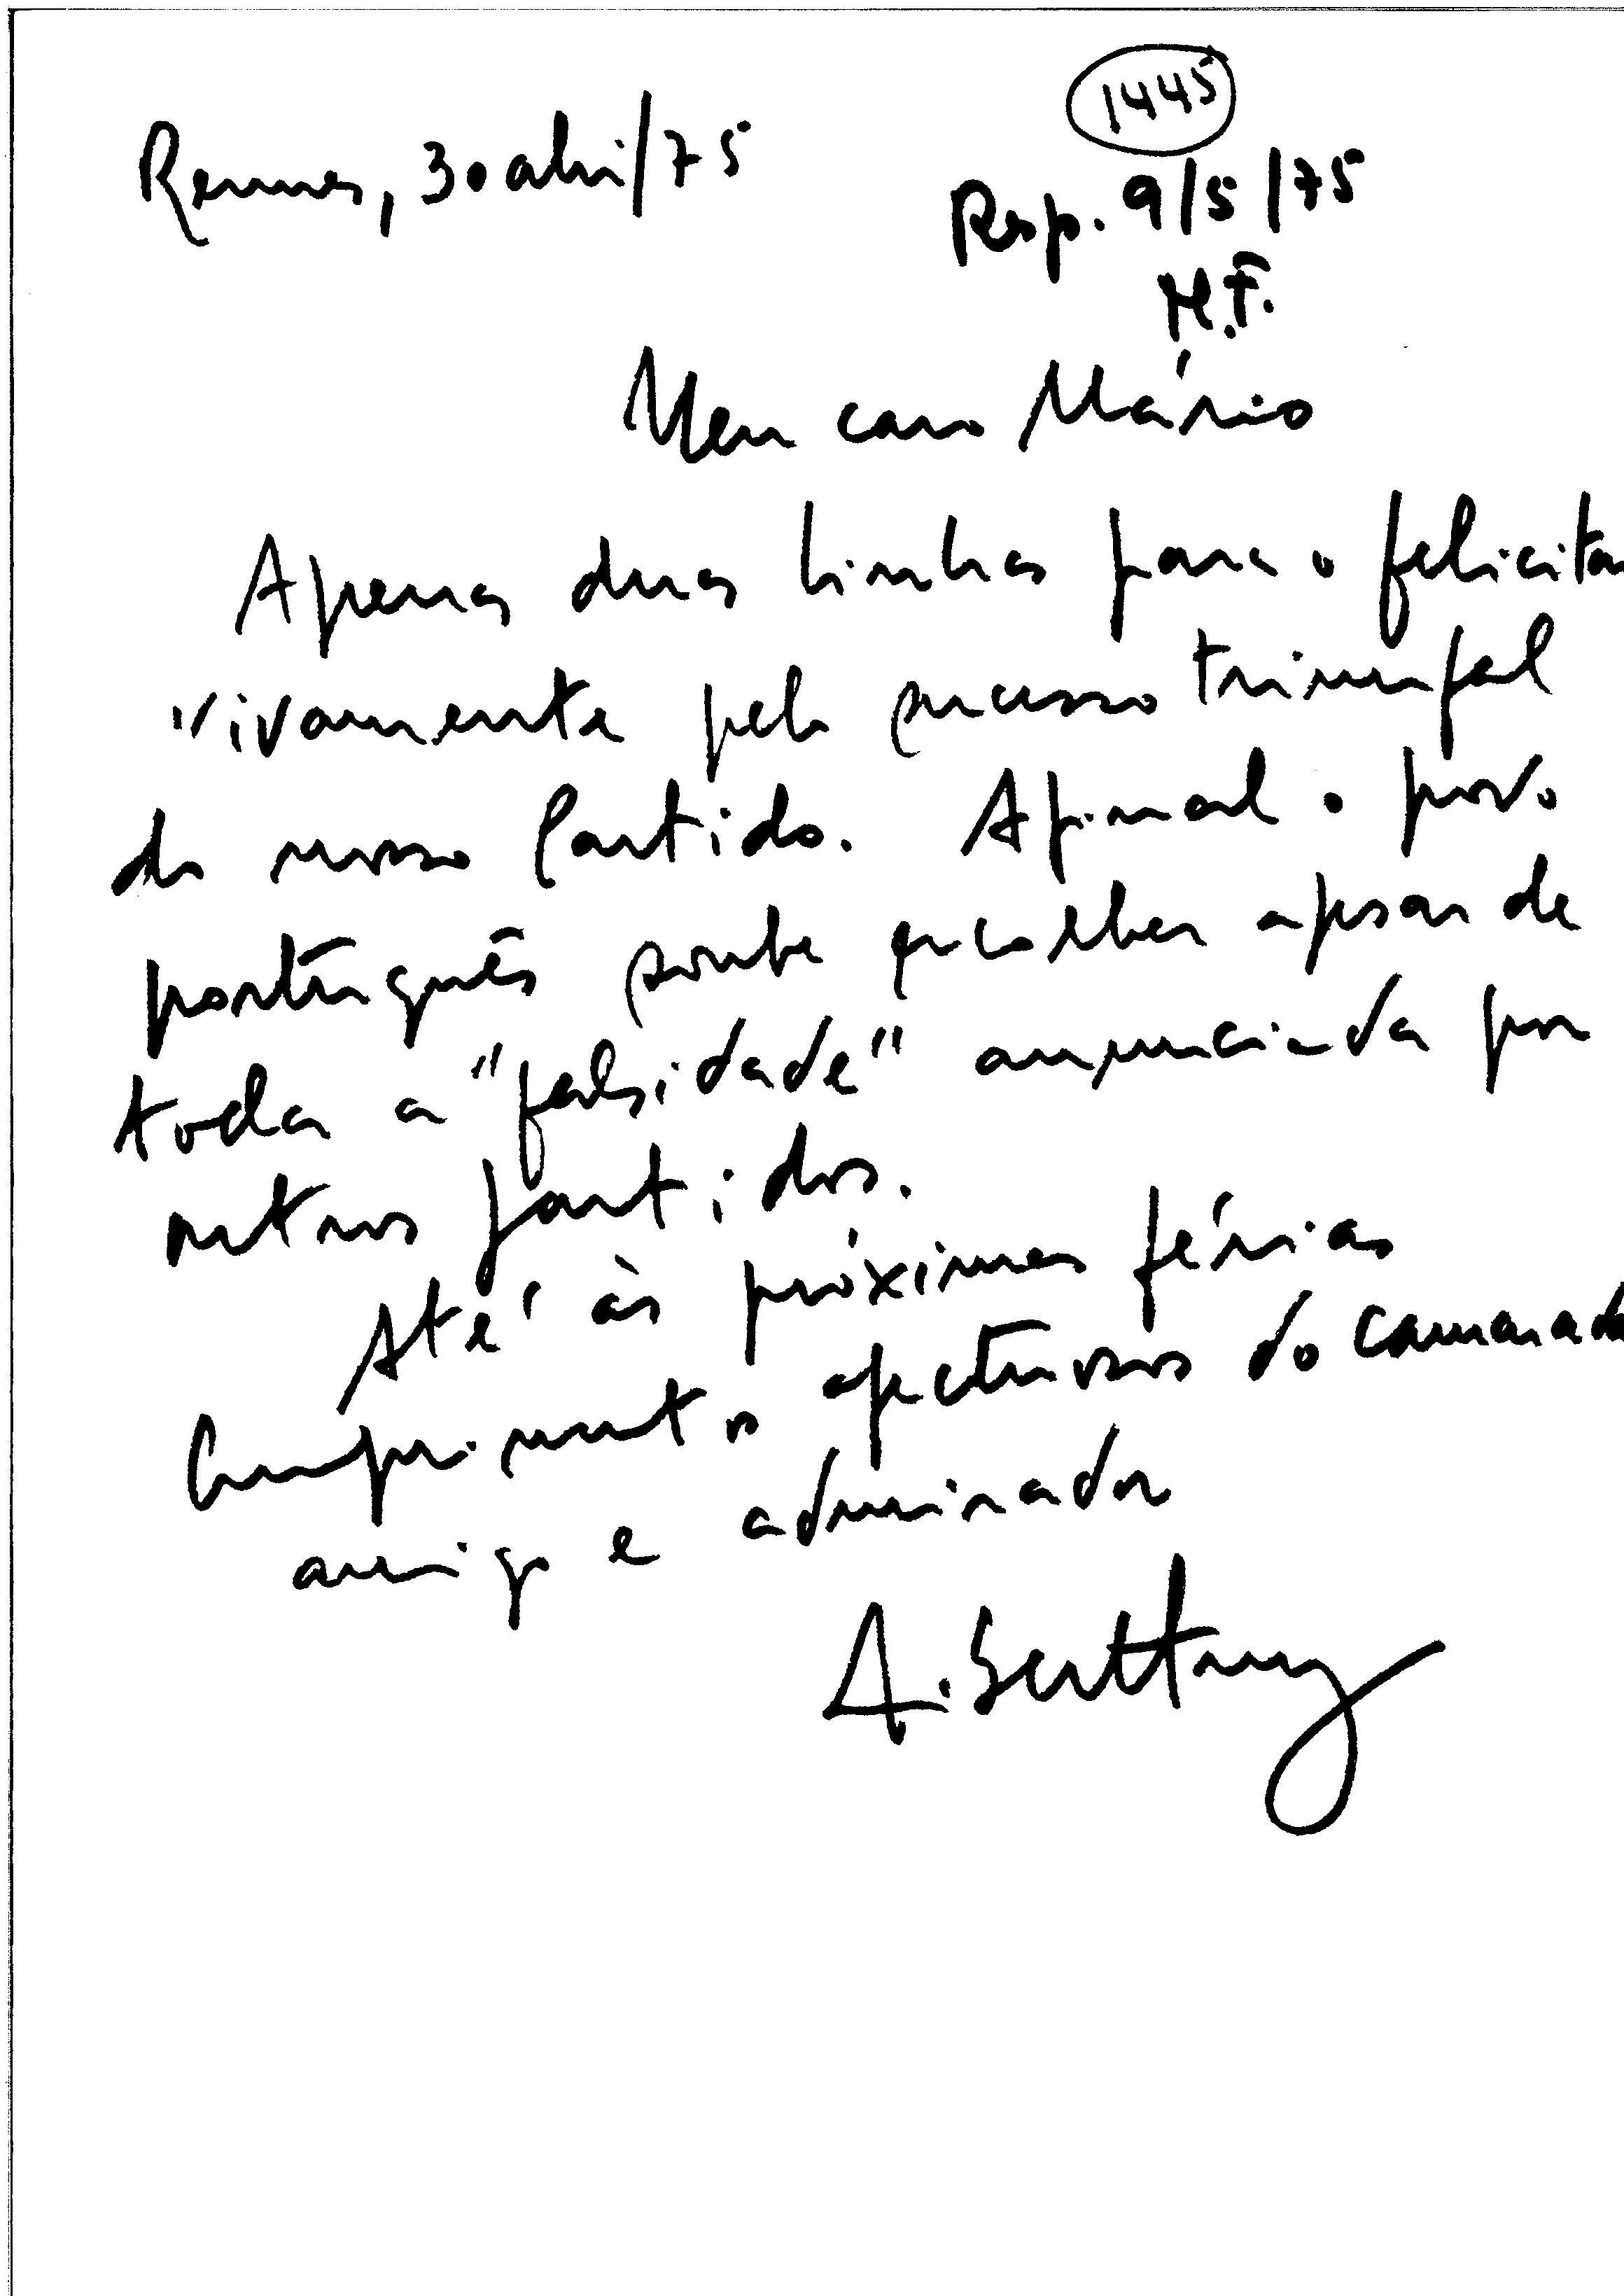 1445
Rennes, 30 abri/75
Resp. 9/5/75
M.F.
Meu caro Mário
Apenas duas linhas para o felicitar
vivamente pelo sucesso triunfal
do nosso Partido. Afinal o povo
português soube escolher apesar de
toda a "falsidade" anunciada por
outros partidos.
Até às próximas férias
Cumprimentos afectuosos do camarada
amigo e admirador
A.